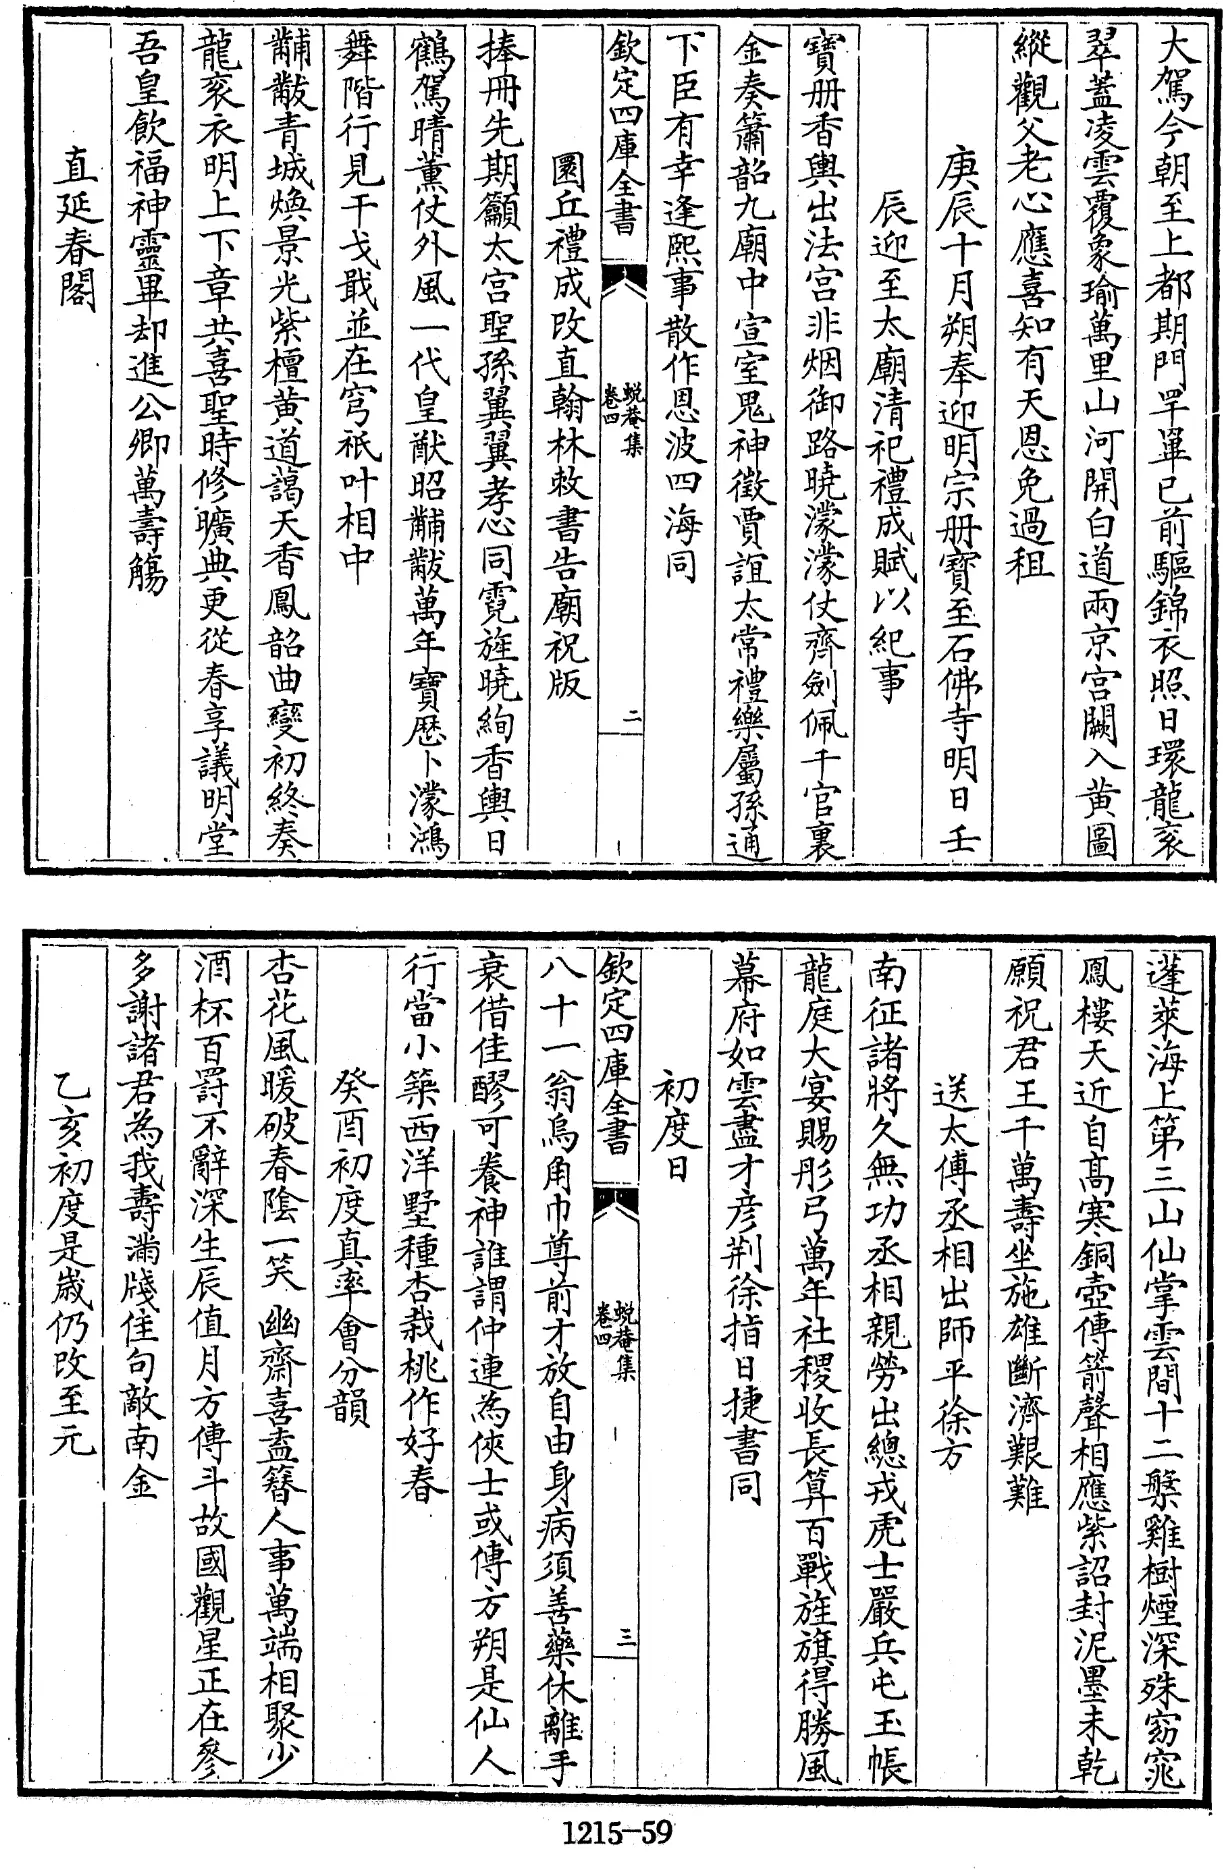 大駕今朝至上都期門罕罼已前驅錦衣照日環龍衮
翠蓋凌雲覆象瑜萬里山河開白道兩京宮闕入黄圖
縱觀父老心應喜知有天恩免過租
庚辰十月朔奉迎明宗册寶至石佛寺明日壬
辰迎至太廟清祀禮成賦以紀事
寶册香輿出法宫非烟御路曉濛濛仗齊劍佩千官裏
金奏簫韶九廟中宣室鬼神徵賈誼太常禮樂屬孫通
下臣有幸逢熙事散作恩波四海同
欽定四庫全書
蛻菴集
卷四
二
圜丘禮成改直翰林敕書告廟祝版
捧冊先期籲太宫聖孫翼翼孝心同霓旌曉絢香輿日
鶴駕晴薰仗外風一代皇猷昭黼黻萬年寶厯卜濛鴻
舞階行見干戈戢並在穹祇叶相中
黼黻青城煥景光紫檀黄道藹天香鳳韶曲變初終奏
龍衮衣明上下章共喜聖時修曠典更從春享議明堂
吾皇飲福神靈畢却進公卿萬壽觴
直延春閣
蓬萊海上第三山仙掌雲間十二槃雞樹煙深殊窈窕
鳳樓天近自高寒銅壺傳箭聲相應紫詔封泥墨未乾
願祝君王千萬壽坐施雄斷濟艱難
送太傅丞相出師平徐方
南征諸將久無功丞相親勞出總戎虎士嚴兵屯玉帳
龍庭大宴賜彤弓萬年社稷收長算百戰旌旗得勝風
幕府如雲盡才彦荆徐指日捷書同
初度日
欽定四庫全書
蛻菴集
卷四
三
八十一翁烏角巾尊前才放自由身病須善藥休離手
衰借佳醪可養神誰謂仲連為俠士或傳方朔是仙人
行當小築西洋墅種杏栽桃作好春
癸酉初度真率會分韻
杏花風暖破春陰一笑幽齋喜盍簪人事萬端相聚少
酒杯百罸不辭深生辰值月方傳斗故國觀星正在參
多謝諸君為我壽滿牋佳句敵南金
乙亥初度是歲仍改至元
1215-59